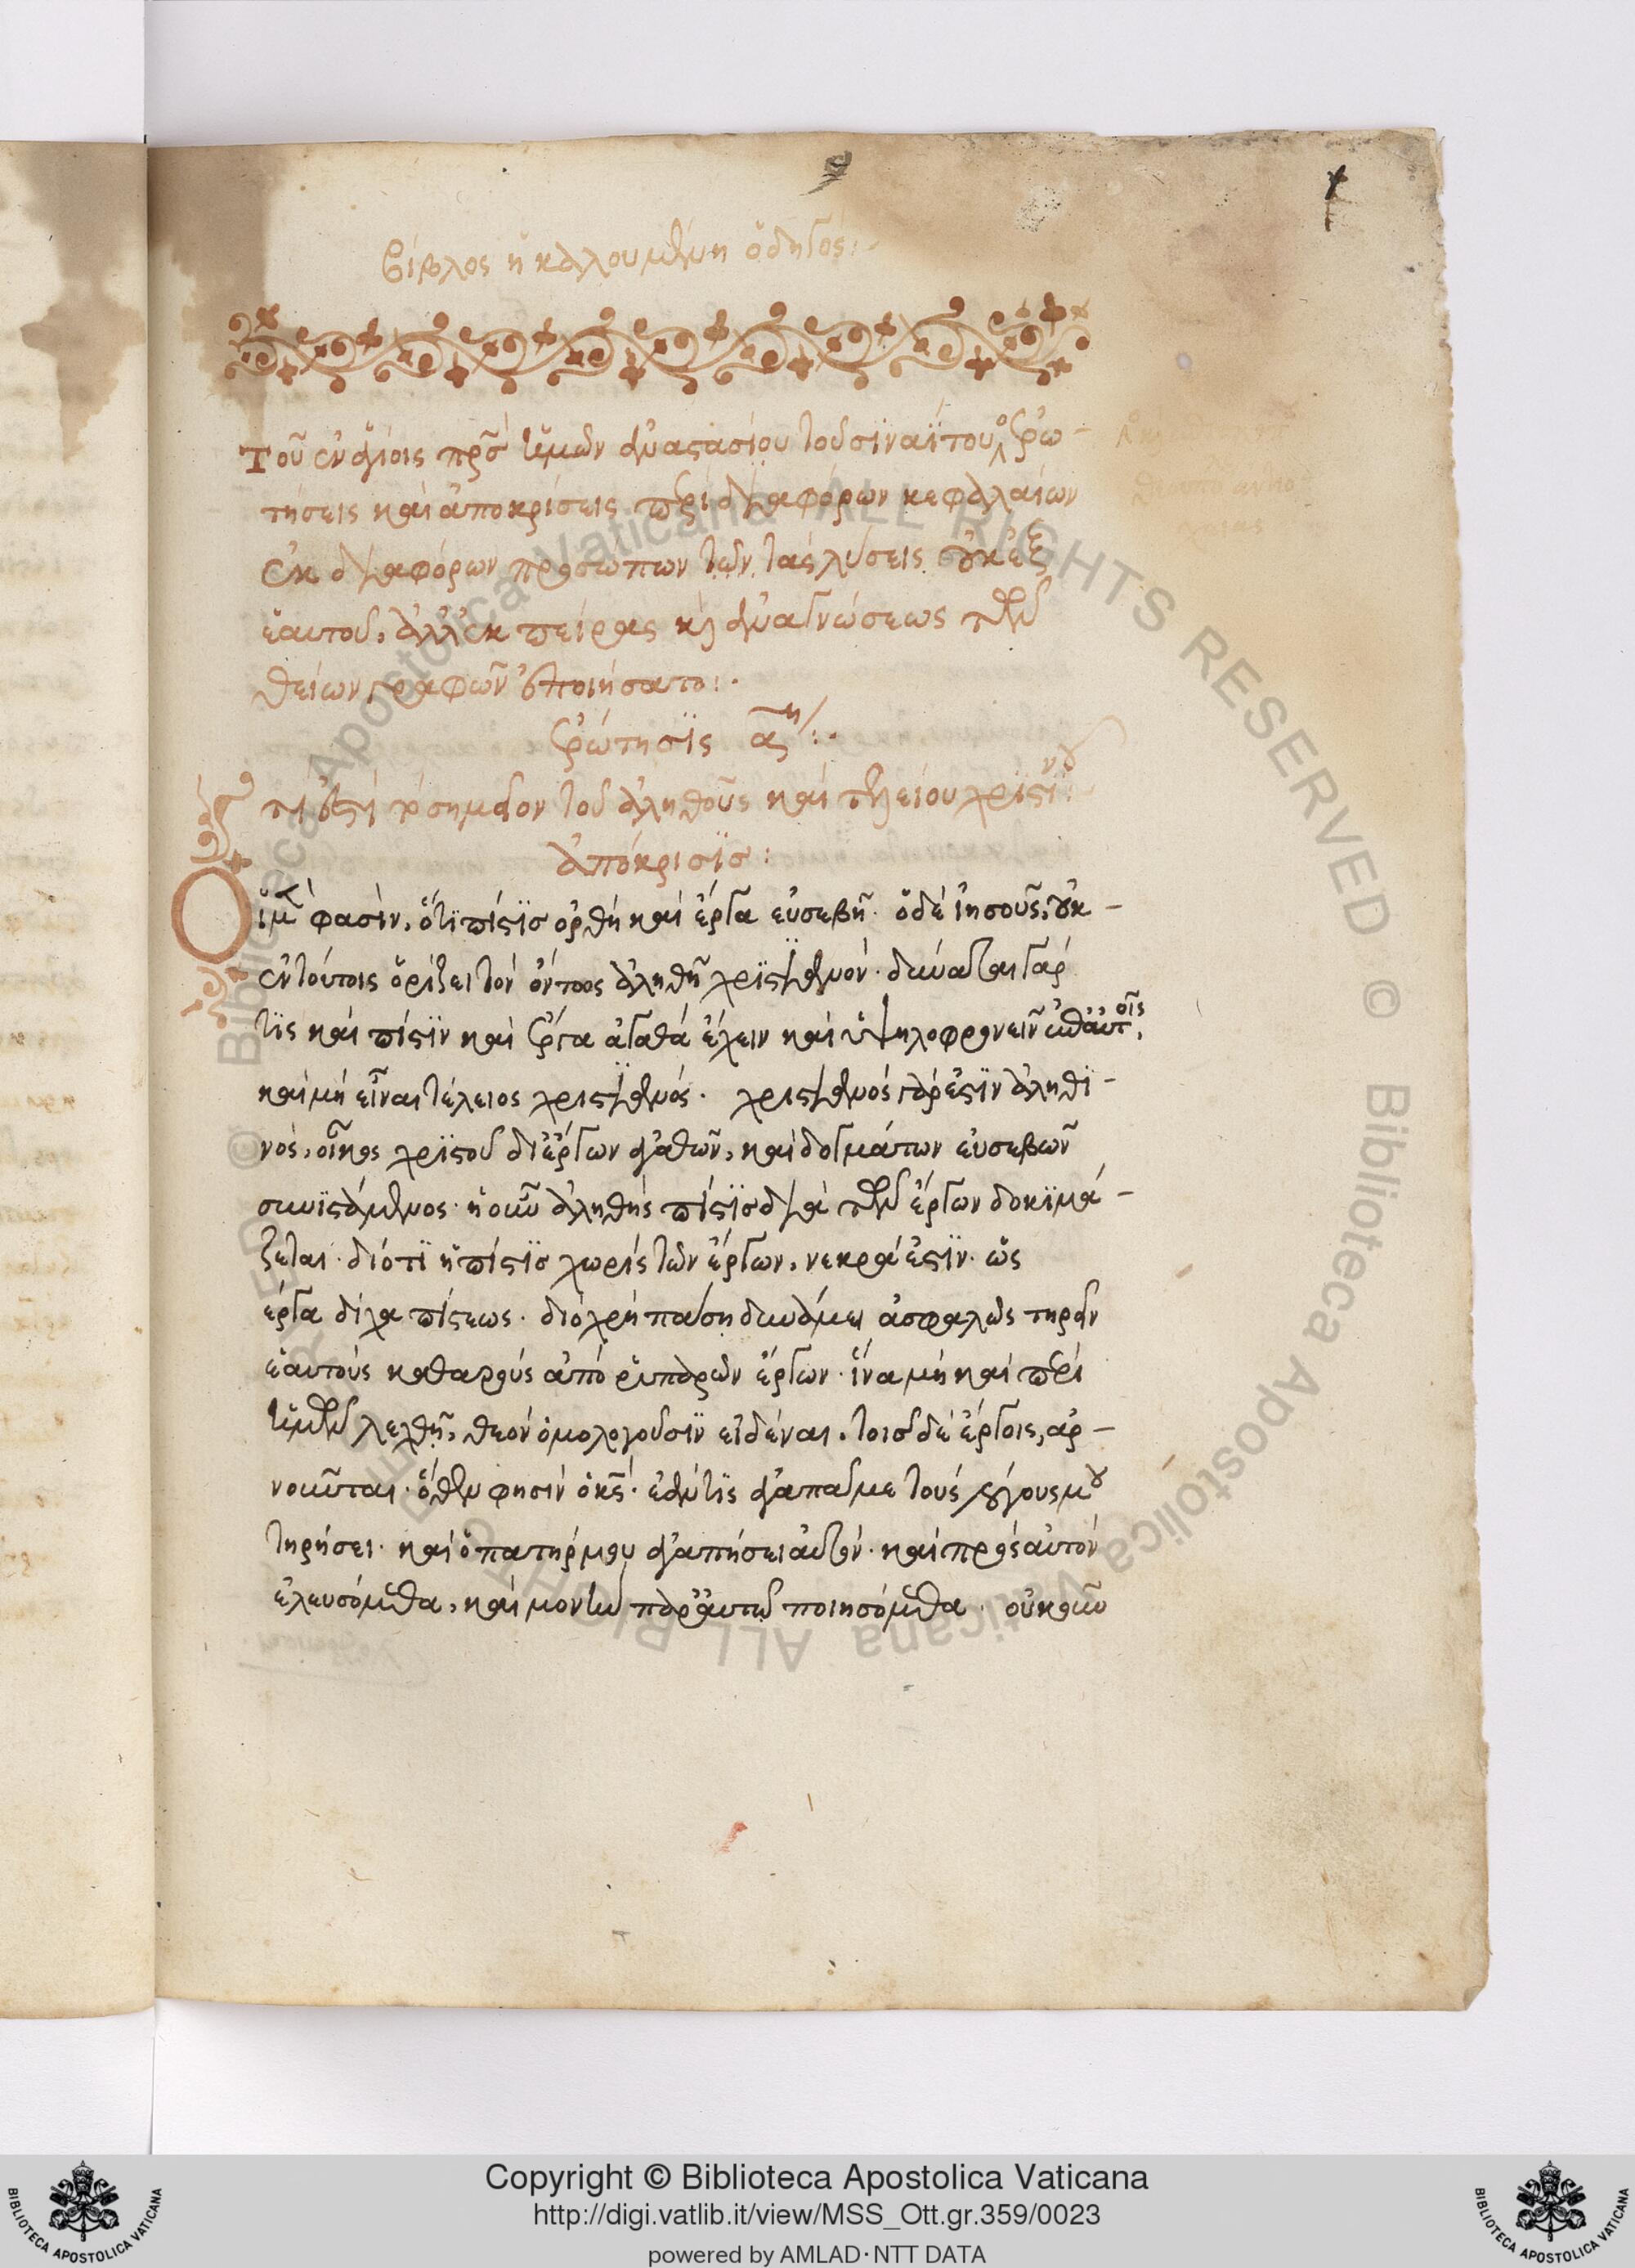 βίβλος ἡ καλουμένη ὁδηγός:-
Τοῦ ἐν ἁγίοις πρς ἡμῶν ἀναστασίου τοῦ σϊναΐτου ἐρω-
τήσεις καὶ ἀποκρίσεις περὶ διαφόρων κεφαλαίων
ἐκ διαφόρων προσώπων ὧν τὰς λύσεις οὐκ ἐξ
ἑαυτοῦ, ἀλλ' ἐκ πείρας κ ἀναγνώσεως τῶν
θείων γραφῶν ἐποιήσατο:·
ἐρώτησϊς α^η:·
τί ἐστὶ τὸ σημεῖον τοῦ ἀληθοῦς καὶ τελείου χρϊστι^νοῦ:
ἀπόκρισϊσ:
Οἱ μὲν φασὶν, ὅτϊ πίστϊσ ὀρθὴ καὶ ἔργα εὐσεβῆ· ὁ δὲ ἰησοῦς, οὐκ-
ἐν τούτοις ὁρίζει τὸν ὄντως ἀληθῆ χρϊστϊανόν· δύναται γάρ
τϊς καὶ πίστϊν καὶ ἔργα ἀγαθὰ ἔχειν καὶ ὑψηλοφρονεῖν ἐπ' αὐτοῖς,
καὶ μὴ εἶναι τέλειος χριστϊανός· χριστϊανός γάρ ἐστϊν ἀληθϊ-
νός, οἶκος χρϊστοῦ δι' ἔργων ἀγαθῶν, καὶ δογμάτων εὐσεβῶν
συνϊστάμενος· ἡ οὖν ἀληθὴς πίστϊσ διὰ τῶν ἔργων δοκϊμά-
ζεται· διότϊ ἡ πίστϊσ χωρὶς τῶν ἔργων, νεκρά ἐστϊν· ὡς
ἔργα δίχα πίστεως· διὸ χρὴ πάσῃ δυνάμει ἀσφαλῶς τηρεῖν
ἑαυτοὺς καθαροὺς ἀπὸ ῥυπαρῶν ἔργων· ἵνα μὴ καὶ περὶ
ἡμῶν λεχθῇ, θεὸν ὁμολογοῦσϊν εἰδέναι, τοῖσ δὲ ἔργοις, ἀρ-
νοῦνται· ὅθεν φησὶν ὁ κς· ἐάν τϊς ἀγαπᾶ με τοὺς λόγους μου
τηρήσει· καὶ ὁ πατήρ μου ἀγαπήσει αὐτόν· καὶ πρὸς αὐτὸν
ἐλευσόμεθα, καὶ μονὴν παρ' αὐτῷ ποιησόμεθα· οὐκοῦν
Copyright © Biblioteca Apostolica Vaticana
http://digi.vatlib.it/view/MSS_Ott.gr.359/0023
powered by AMLAD·NTT DATA
BIBLIOTECA APOSTOLICA VATICANA
BIBLIOTECA APOSTOLICA VATICANA
© Biblioteca Apostolica Vaticana ALL RIGHTS RESERVED © Biblioteca Apostolica Vaticana ALL RIGHTS RESERVED